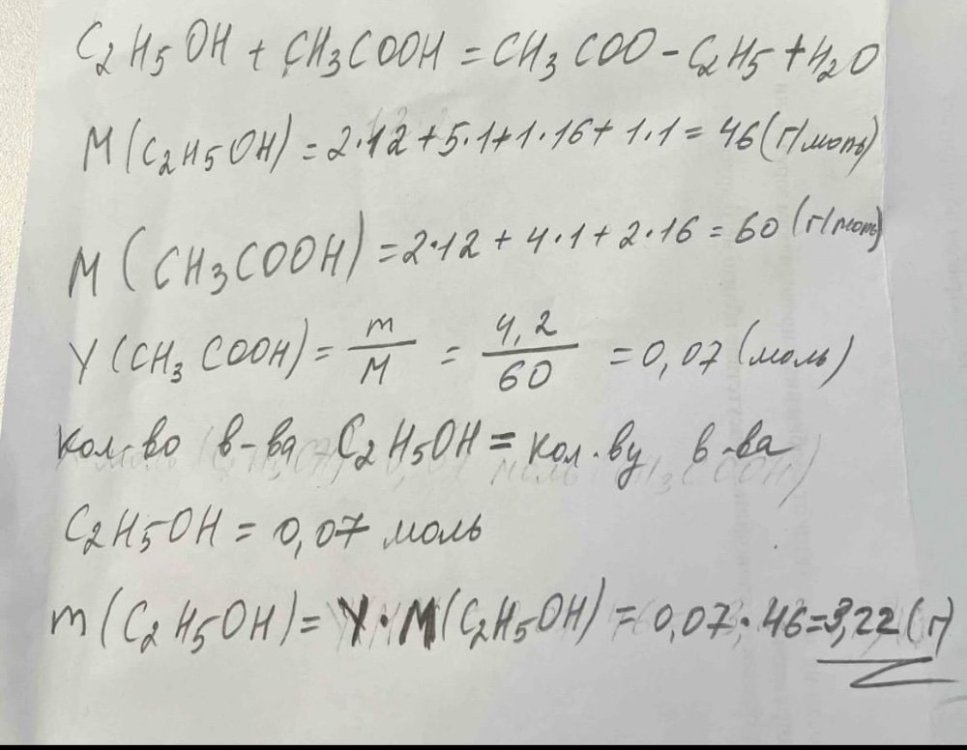 C2H5OH + CH3COOH = CH3COO - C2H5 + H2O
M(C2H5OH) = 2·12 + 5·1 + 1·16 + 1·1 = 46 (г/моль)
M(CH3COOH) = 2·12 + 4·1 + 2·16 = 60 (г/моль)
Y(CH3COOH) = m/M = 4,2/60 = 0,07 (моль)
кол-во в-ва C2H5OH = кол-ву в-ва
C2H5OH = 0,07 моль
m(C2H5OH) = Y·M(C2H5OH) = 0,07·46=3,22(г)